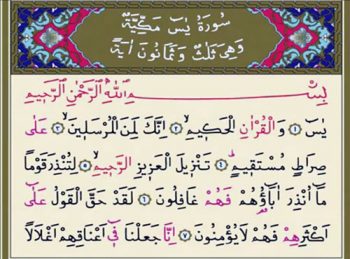 سُورَةُ يٰسٓ مَكِّيَّةٌ
وَهِيَ ثَلٰثٌ وَثَمَانُونَ اٰيَةً
بِسْمِ اللّٰهِ الرَّحْمٰنِ الرَّحِيمِ
يٰسٓ ﴿١﴾ وَالْقُرْاٰنِ الْحَكِيمِ ﴿٢﴾ اِنَّكَ لَمِنَ الْمُرْسَلِينَ ﴿٣﴾ عَلٰى
صِرَاطٍ مُسْتَقِيمٍ ﴿٤﴾ تَنْزِيلَ الْعَزِيزِ الرَّحِيمِ ﴿٥﴾ لِتُنْذِرَ قَوْمًا
مَٓا اُنْذِرَ اٰبَٓاؤُ۬هُمْ فَهُمْ غَافِلُونَ ﴿٦﴾ لَقَدْ حَقَّ الْقَوْلُ عَلٰٓى
اَكْثَرِهِمْ فَهُمْ لَا يُؤْمِنُونَ ﴿٧﴾ اِنَّا جَعَلْنَا فِٓي اَعْنَاقِهِمْ اَغْلَالًا